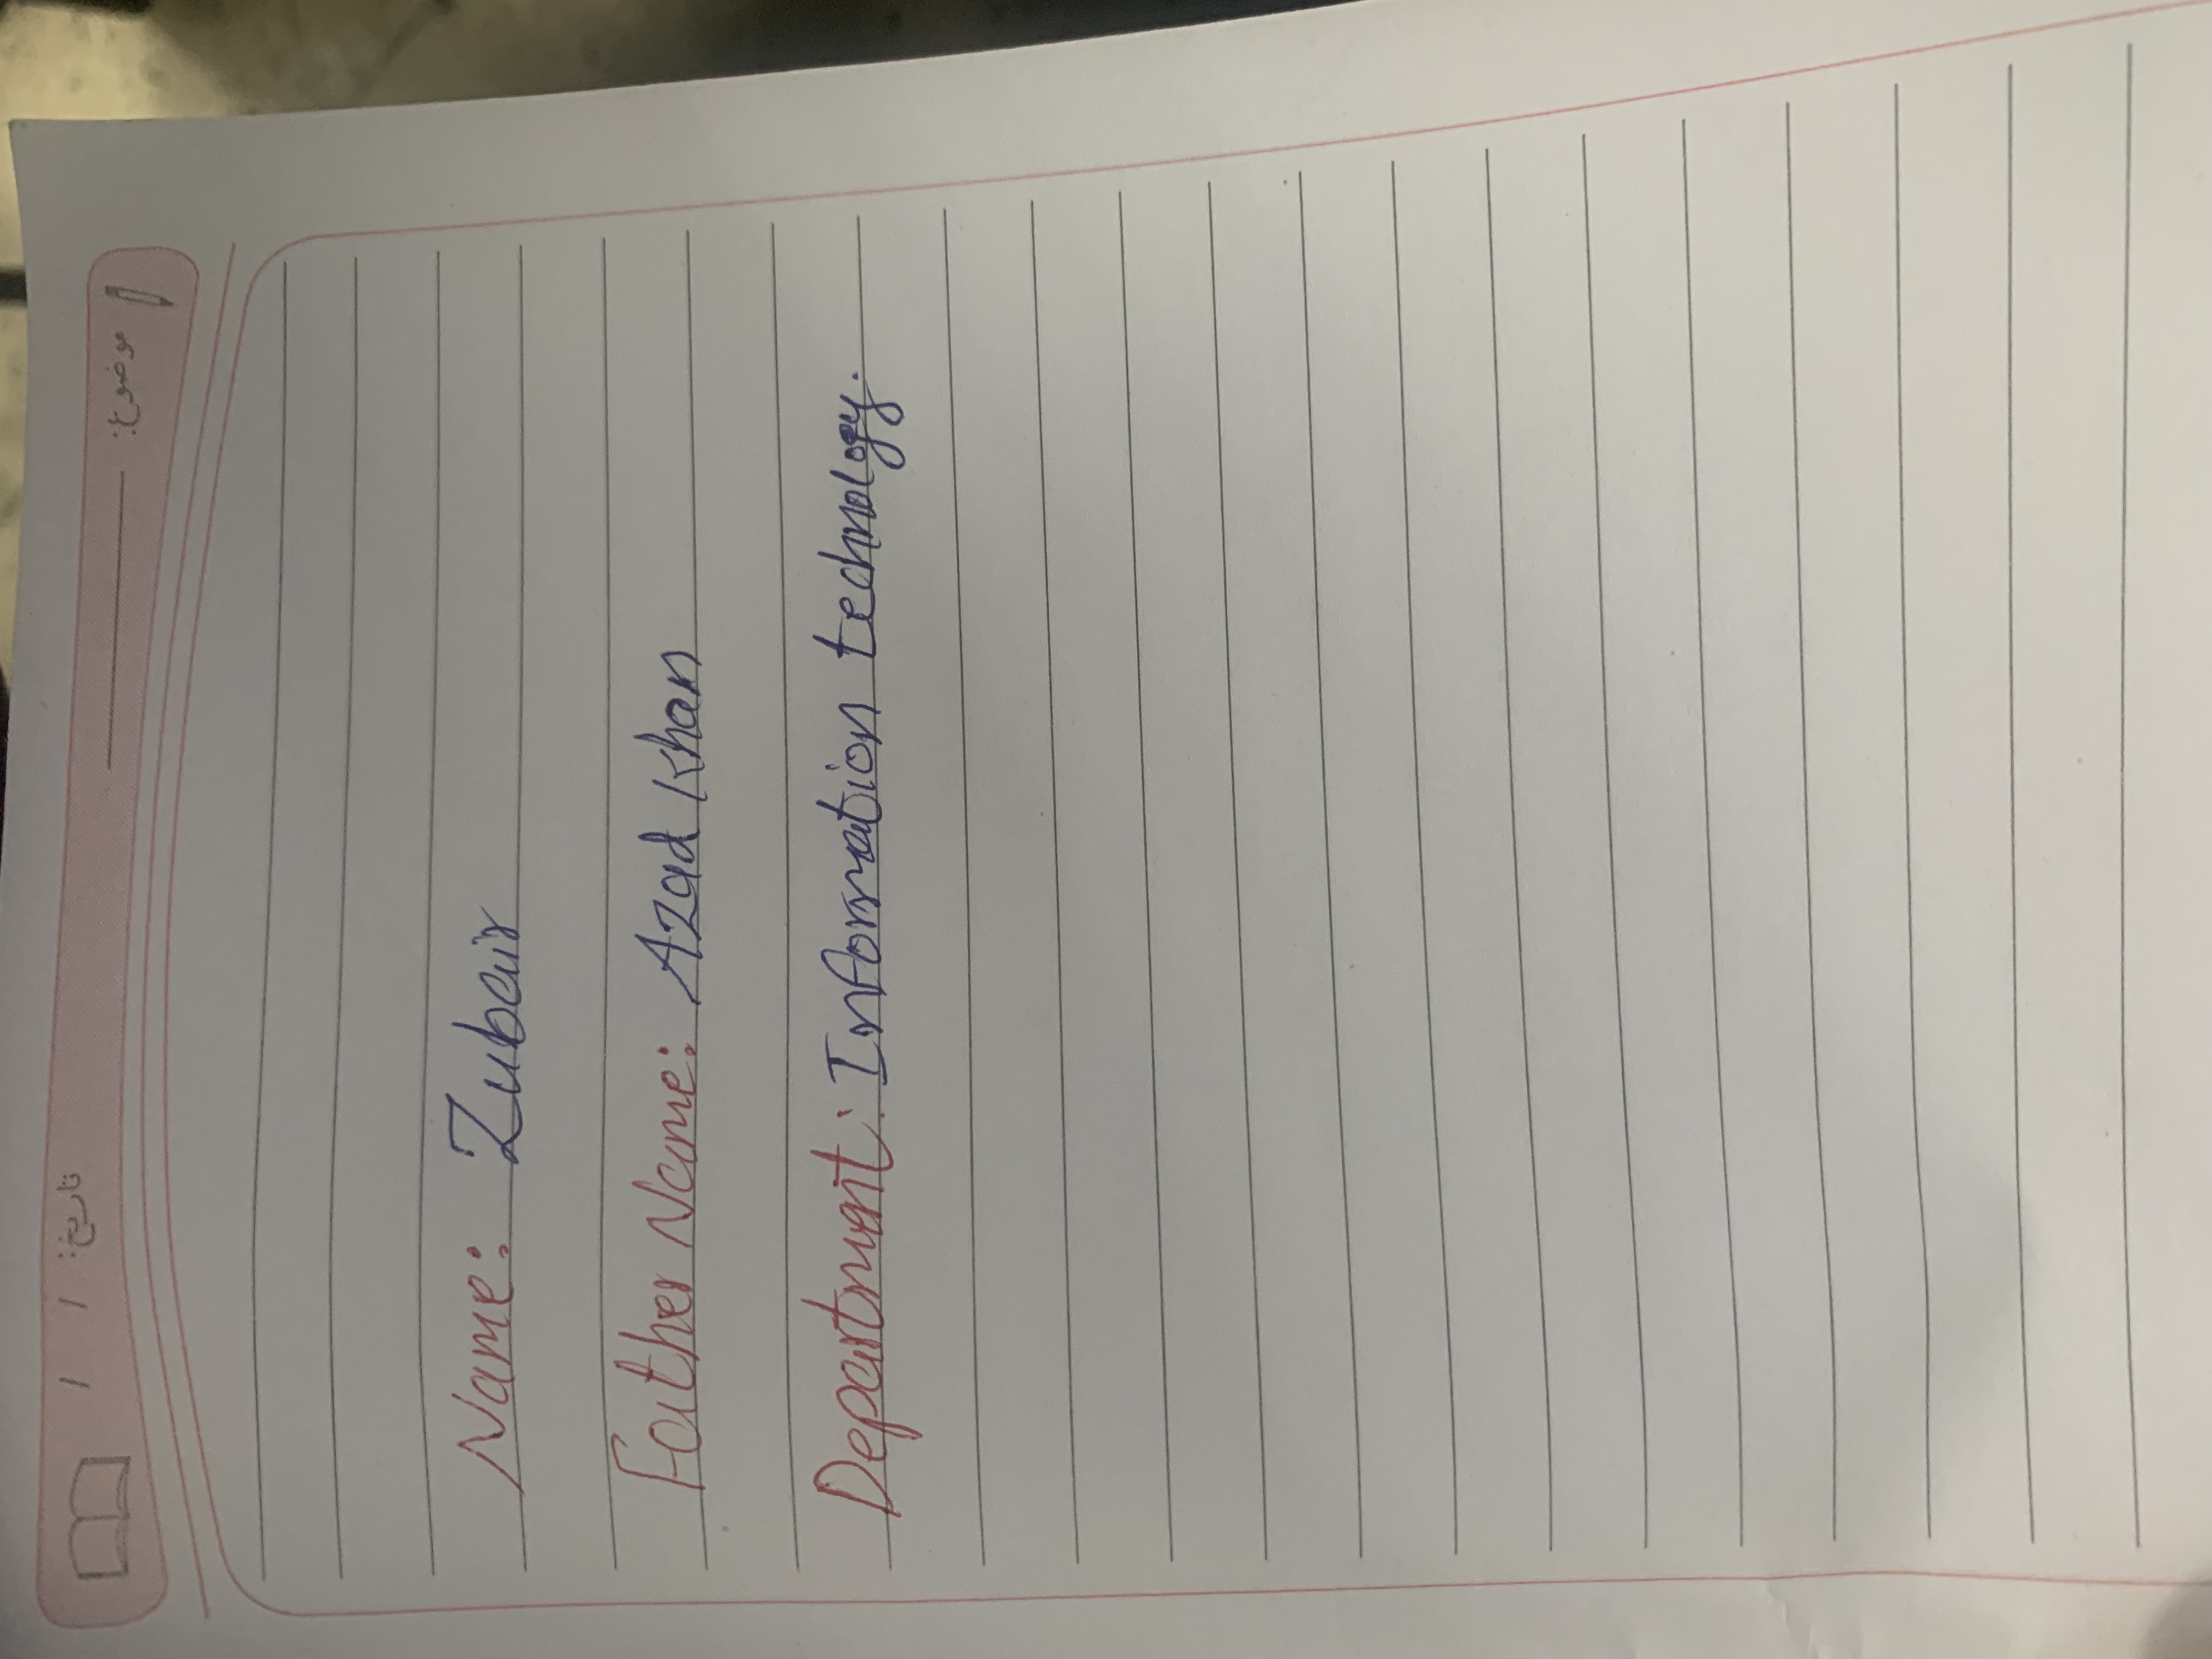 موضوع: تاریخ: / /
Name: Zubair
Father Name: Azad Khan
Department: Information technology.